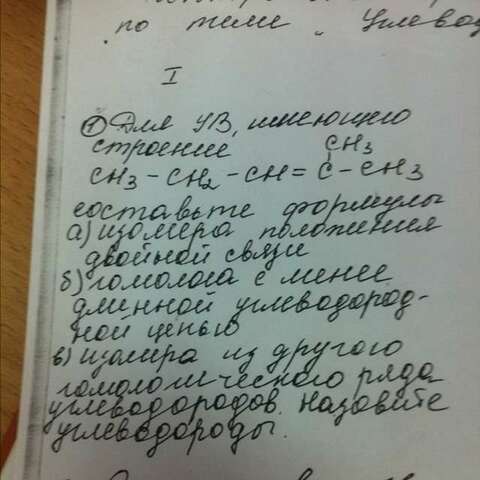 по теме „Углевод
I
① Для УВ, имеющего
строение
CH3
CH3 - CH2 - CH = C - CH3
составьте формулы
а) изомера положения
двойной связи
б) гомолога с менее
длинной углеводород-
ной цепью
в) изомера из другого
гомологического ряда
углеводородов. Назовите
углеводороды.